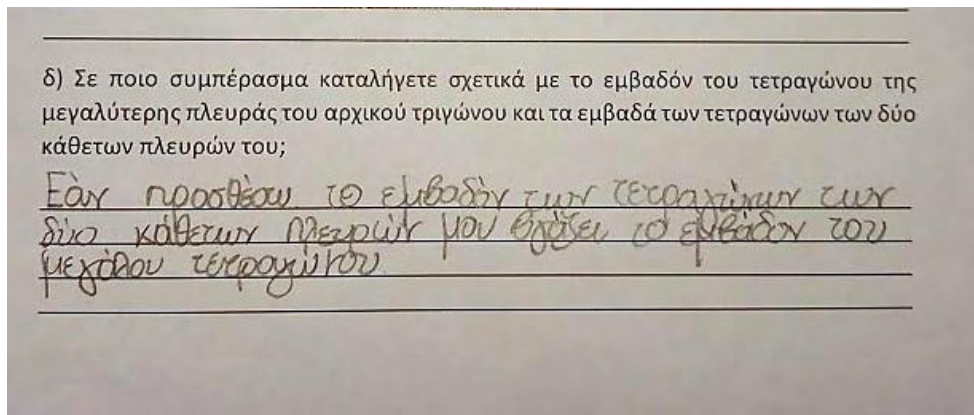 δ) Σε ποιο συμπέρασμα καταλήγετε σχετικά με το εμβαδόν του τετραγώνου της
μεγαλύτερης πλευράς του αρχικού τριγώνου και τα εμβαδά των τετραγώνων των δύο
κάθετων πλευρών του;
Εάν προσθέσω το εμβαδόν των τετραγώνων των
δύο κάθετων πλευρών μου βγάζει το εμβάδον του
μεγάλου τετραγώνου